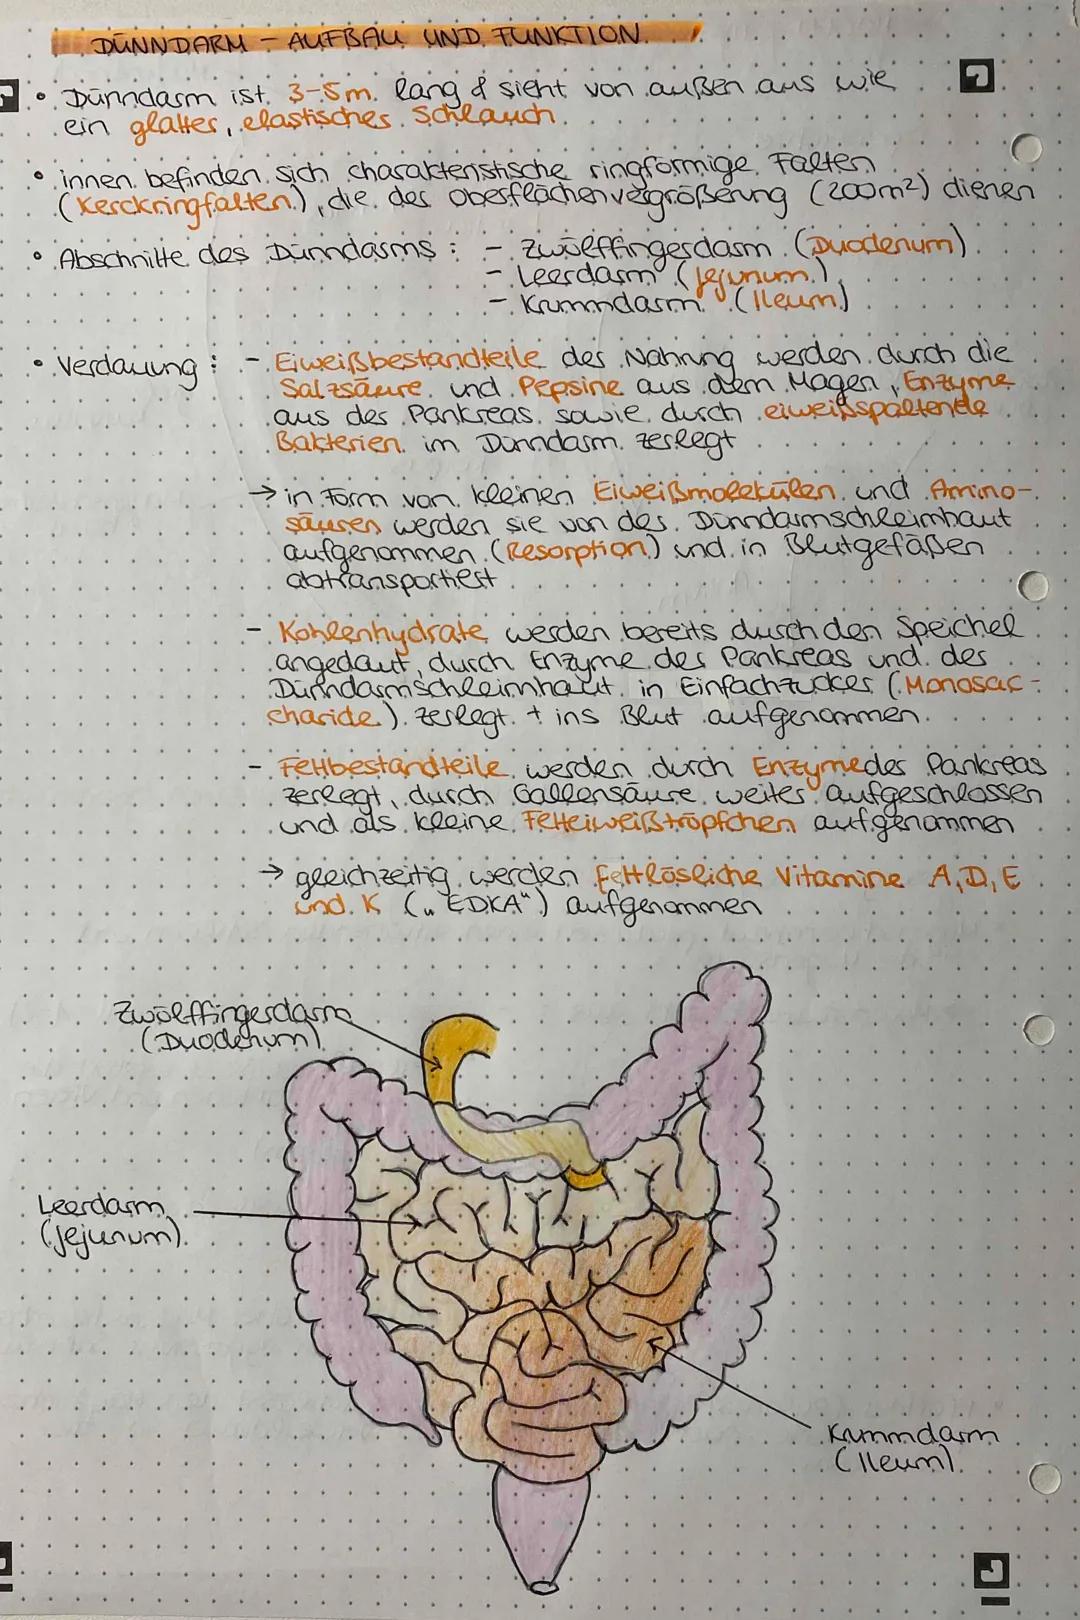 DÜNNDARM – AUFBAU UND FUNKTION
• Dünndarm ist 3-5m lang & sieht von außen aus wie
ein glatter, elastisches Schlauch
• innen befinden sich charakteristische ringförmige Falten
(Kerckringfalten), die der Oberflächenvergrößerung (200m²) dienen
• Abschnitte des Dünndarms : – Zwölffingerdarm (Duodenum)
– Leerdarm (Jejunum)
– Krummdarm (Ileum)
• Verdauung : – Eiweißbestandteile der Nahrung werden durch die
Salzsäure und Pepsine aus dem Magen, Enzyme
aus des Pankreas sowie durch eiweißspaltende
Bakterien im Dünndarm zerlegt
→ in Form von kleinen Eiweißmolekülen und Amino-
säuren werden sie von der Dünndarmschleimhaut
aufgenommen (Resorption) und in Blutgefäßen
abtransportiert
– Kohlenhydrate werden bereits durch den Speichel
angedaut, durch Enzyme des Pankreas und der
Dünndarmschleimhaut in Einfachzucker (Monosac-
charide) zerlegt + ins Blut aufgenommen
– Fettbestandteile werden durch Enzyme des Pankreas
zerlegt, durch Gallensäure weiter aufgeschlossen
und als kleine Fetteiweißtröpfchen aufgenommen
→ gleichzeitig werden fettlösliche Vitamine A, D, E
und K („EDKA“) aufgenommen
Zwölffingerdarm
(Duodenum)
Leerdarm
(Jejunum)
Krummdarm
(Ileum)